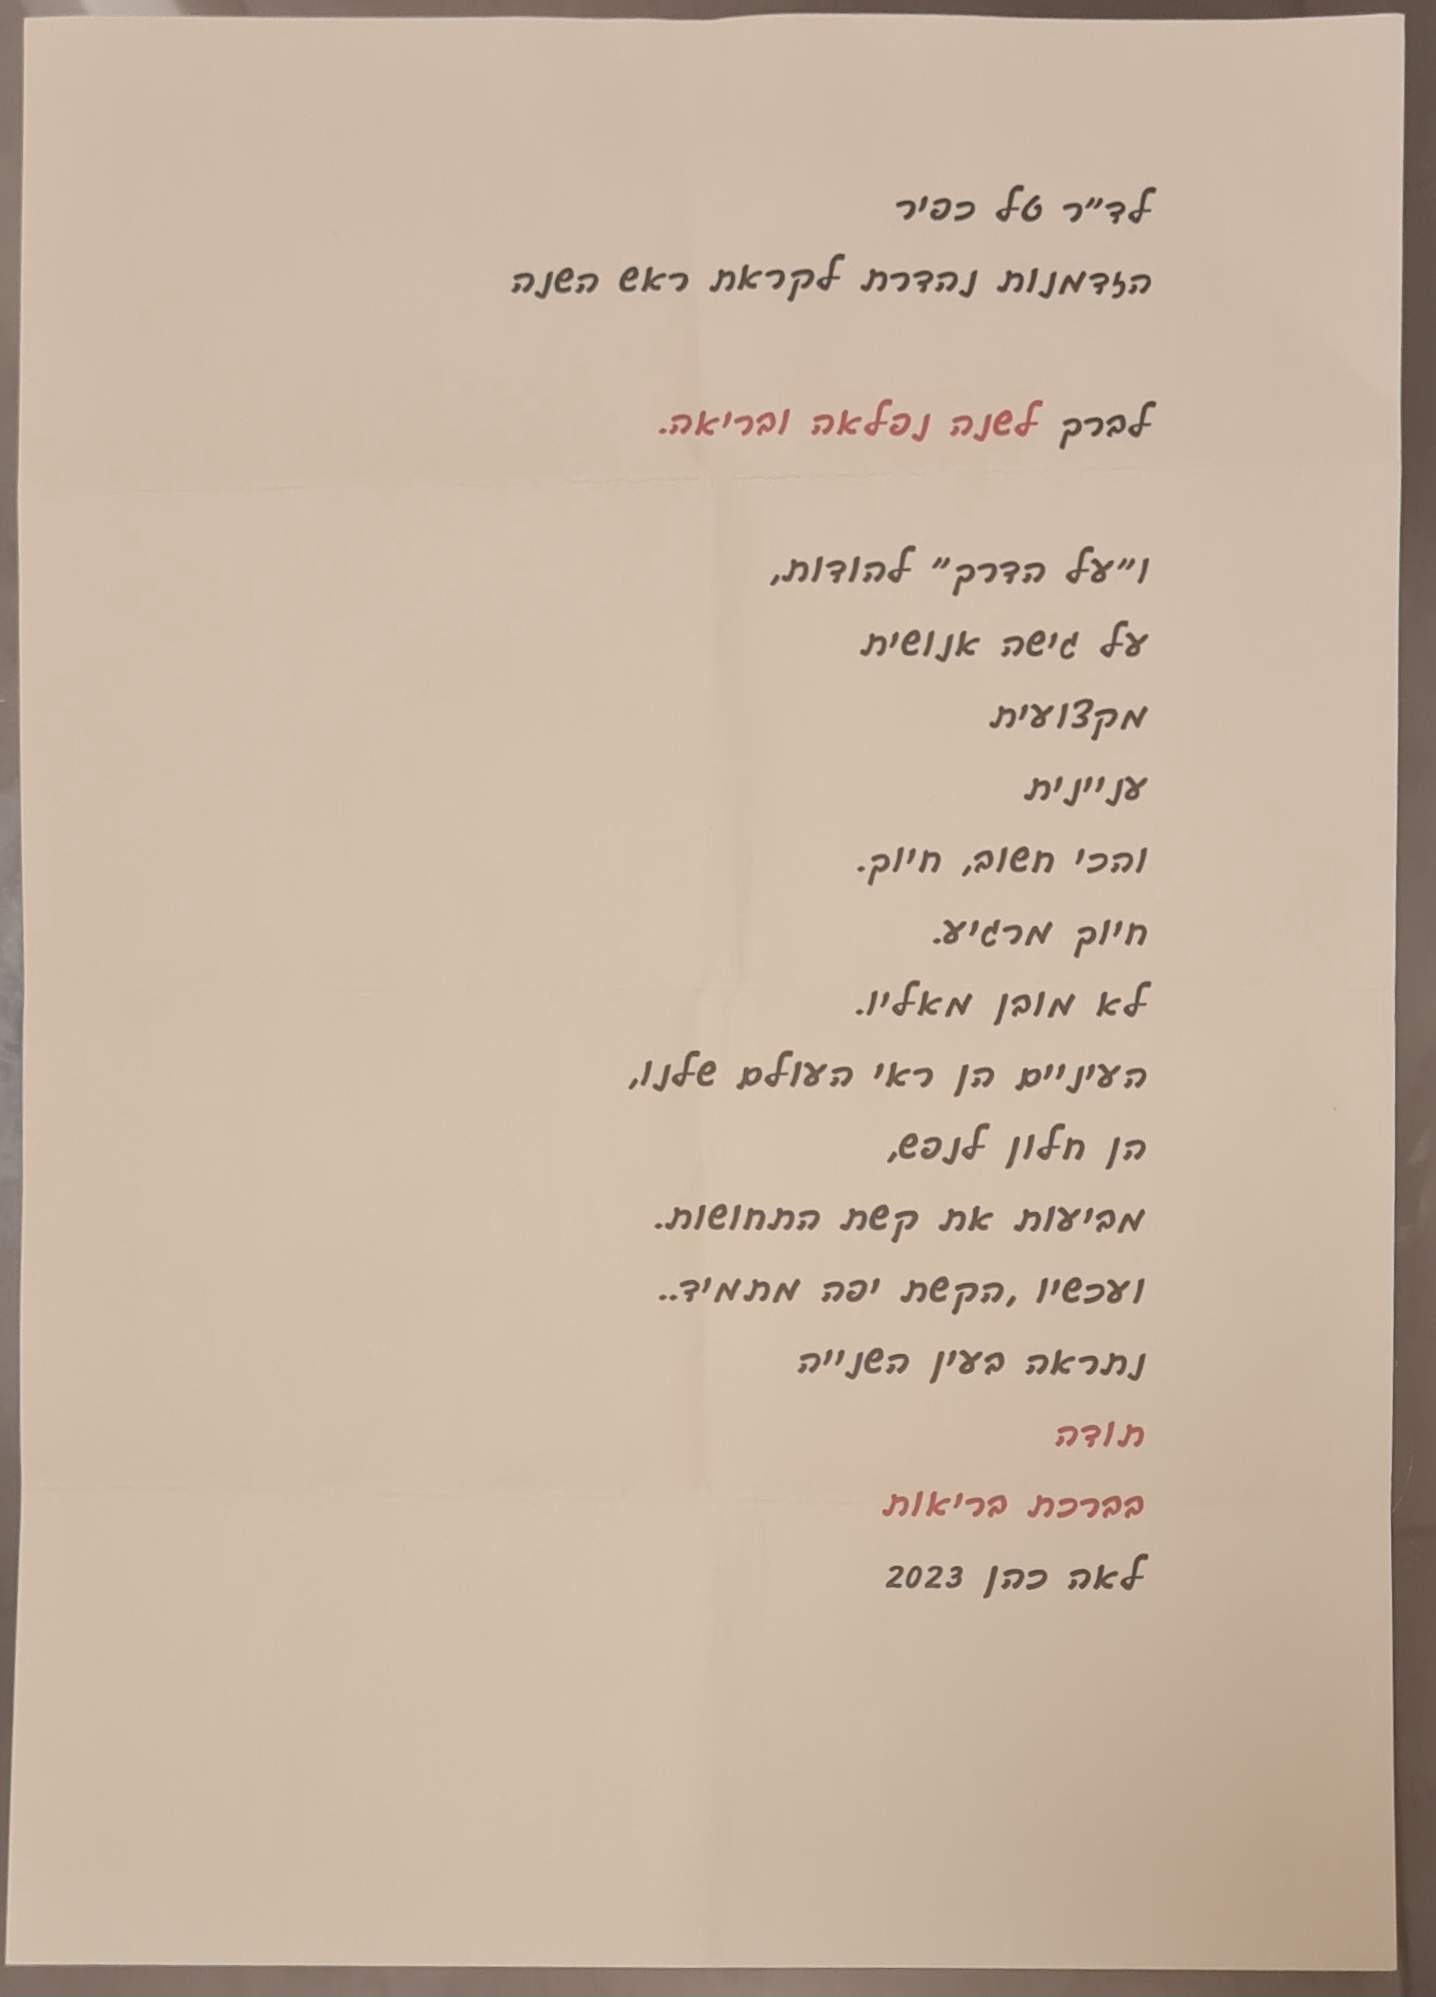 לד"ר טל כפיר
הזדמנות נהדרת לקראת ראש השנה
לברך לשנה נפלאה ובריאה.
ו"על הדרך" להודות,
על גישה אנושית
מקצועית
עניינית
והכי חשוב, חיוך.
חיוך מרגיע.
לא מובן מאליו.
העיניים הן ראי העולם שלנו,
הן חלון לנפש,
מביעות את קשת התחושות.
ועכשיו ,הקשת יפה מתמיד..
נתראה בעין השנייה
תודה
בברכת בריאות
לאה כהן 2023